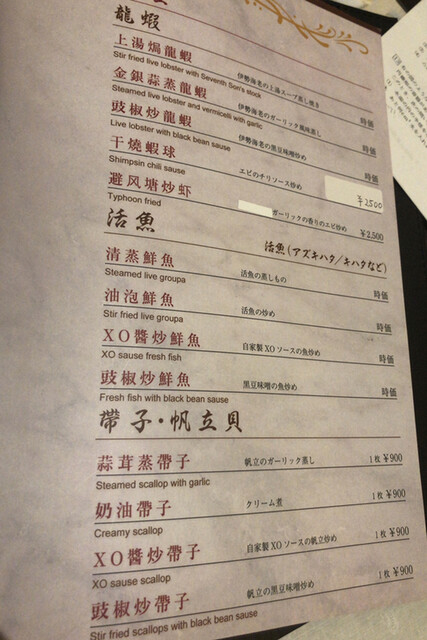 龍蝦
上湯焗龍蝦 伊勢海老の上湯スープ蒸し焼き 時価
Stir fried live lobster with Seventh Son's stock
金銀蒜蒸龍蝦 伊勢海老のガーリック風味蒸し 時価
Steamed live lobster and vermicelli with garlic
豉椒炒龍蝦 伊勢海老の黒豆味噌炒め 時価
Live lobster with black bean sause
干燒蝦球 エビのチリソース炒め ¥2500
Shimpsin chili sause
避风塘炒虾 ガーリックの香りのエビ炒め ¥2,500
Typhoon fried
活魚 活魚(アズキハタ/キハタなど)
清蒸鮮魚 活魚の蒸しもの 時価
Steamed live groupa
油泡鮮魚 活魚の炒め 時価
Stir fried live groupa
XO醬炒鮮魚 自家製XOソースの魚炒め 時価
XO sause fresh fish
豉椒炒鮮魚 黒豆味噌の魚炒め 時価
Fresh fish with black bean sause
帶子・帆立貝
蒜茸蒸帶子 帆立のガーリック蒸し 1枚 ¥900
Steamed scallop with garlic
奶油帶子 クリーム煮 1枚 ¥900
Creamy scallop
XO醬炒帶子 自家製XOソースの帆立炒め 1枚 ¥900
XO sause scallop
豉椒炒帶子 帆立の黒豆味噌炒め 1枚 ¥900
Stir fried scallops with black bean sause